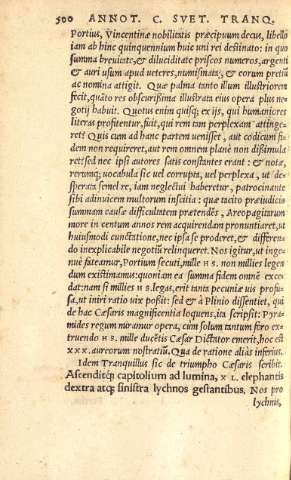 500 ANNOT. C. SVET. TRANQ.
Portius, Vincentinæ nobilitatis præcipuum decus, libello
iam ab hinc quinquennium huic uni rei destinato: in quo
summa breuitate, & diluciditate priscos numeros, argenti
& auri usum apud ueteres, numismata, & eorum pretiũ
ac nomina attigit. Qua palma tanto illum illustriorem
fecit, quãto res obscurissima illustrata eius opera plus ne-
gotij habuit. Quotus enim quisq; ex ijs, qui humaniores
literas profitentur, fuit, qui rem tam perplexam attinge-
ret? Quis cum ad hanc partem uenisset, aut codicum fi-
dem non requireret, aut rem omnem planè non dißimula
ret: sed nec ipsi autores satis constantes erant: & notæ,
rerumq; uocabula sic uel corrupta, uel perplexa, ut de-
sperata semel re, iam neglectui haberetur, patrocinante
sibi adinuicem multorum inscitia: quæ tacito præiudicio
summam causæ difficultatem prætendẽs, Areopagitarum
more in centum annos rem acquirendam pronuntiaret, ut
huiusmodi cunctatione, nec ipsa se proderet, & differen-
do inexplicabile negotiũ relinqueret. Nos igitur, ut inge-
nuè fateamur, Portium secuti, mille HS. non millies legen
dum existimamus: quoniam ea summa fidem omnẽ exce-
dat: nam si millies HS. legas, erit tanta pecuniæ uis profu-
sa, ut iniri ratio uix poßit: sed & à Plinio dissentiet, qui
de hac Cæsaris magnificentia loquens, ita scripsit: Pyra-
mides regum miramur opera, cum solum tantum foro ex-
truendo HS. mille ducẽtis Cæsar Dictator emerit, hoc est
XXX. aureorum nostratiũ. Qua de ratione aliàs inferius.
Idem Tranquillus sic de triumpho Cæsaris scribit.
Ascenditq; capitolium ad lumina, XL. elephantis
dextra atq; sinistra lychnos gestantibus. Nos pro
lychnis,